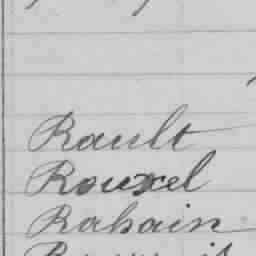 Rault
Rouxel
Rabain